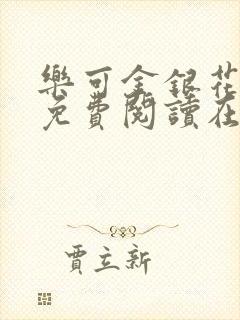 樂可金銀花
免費閱讀在
賈立新